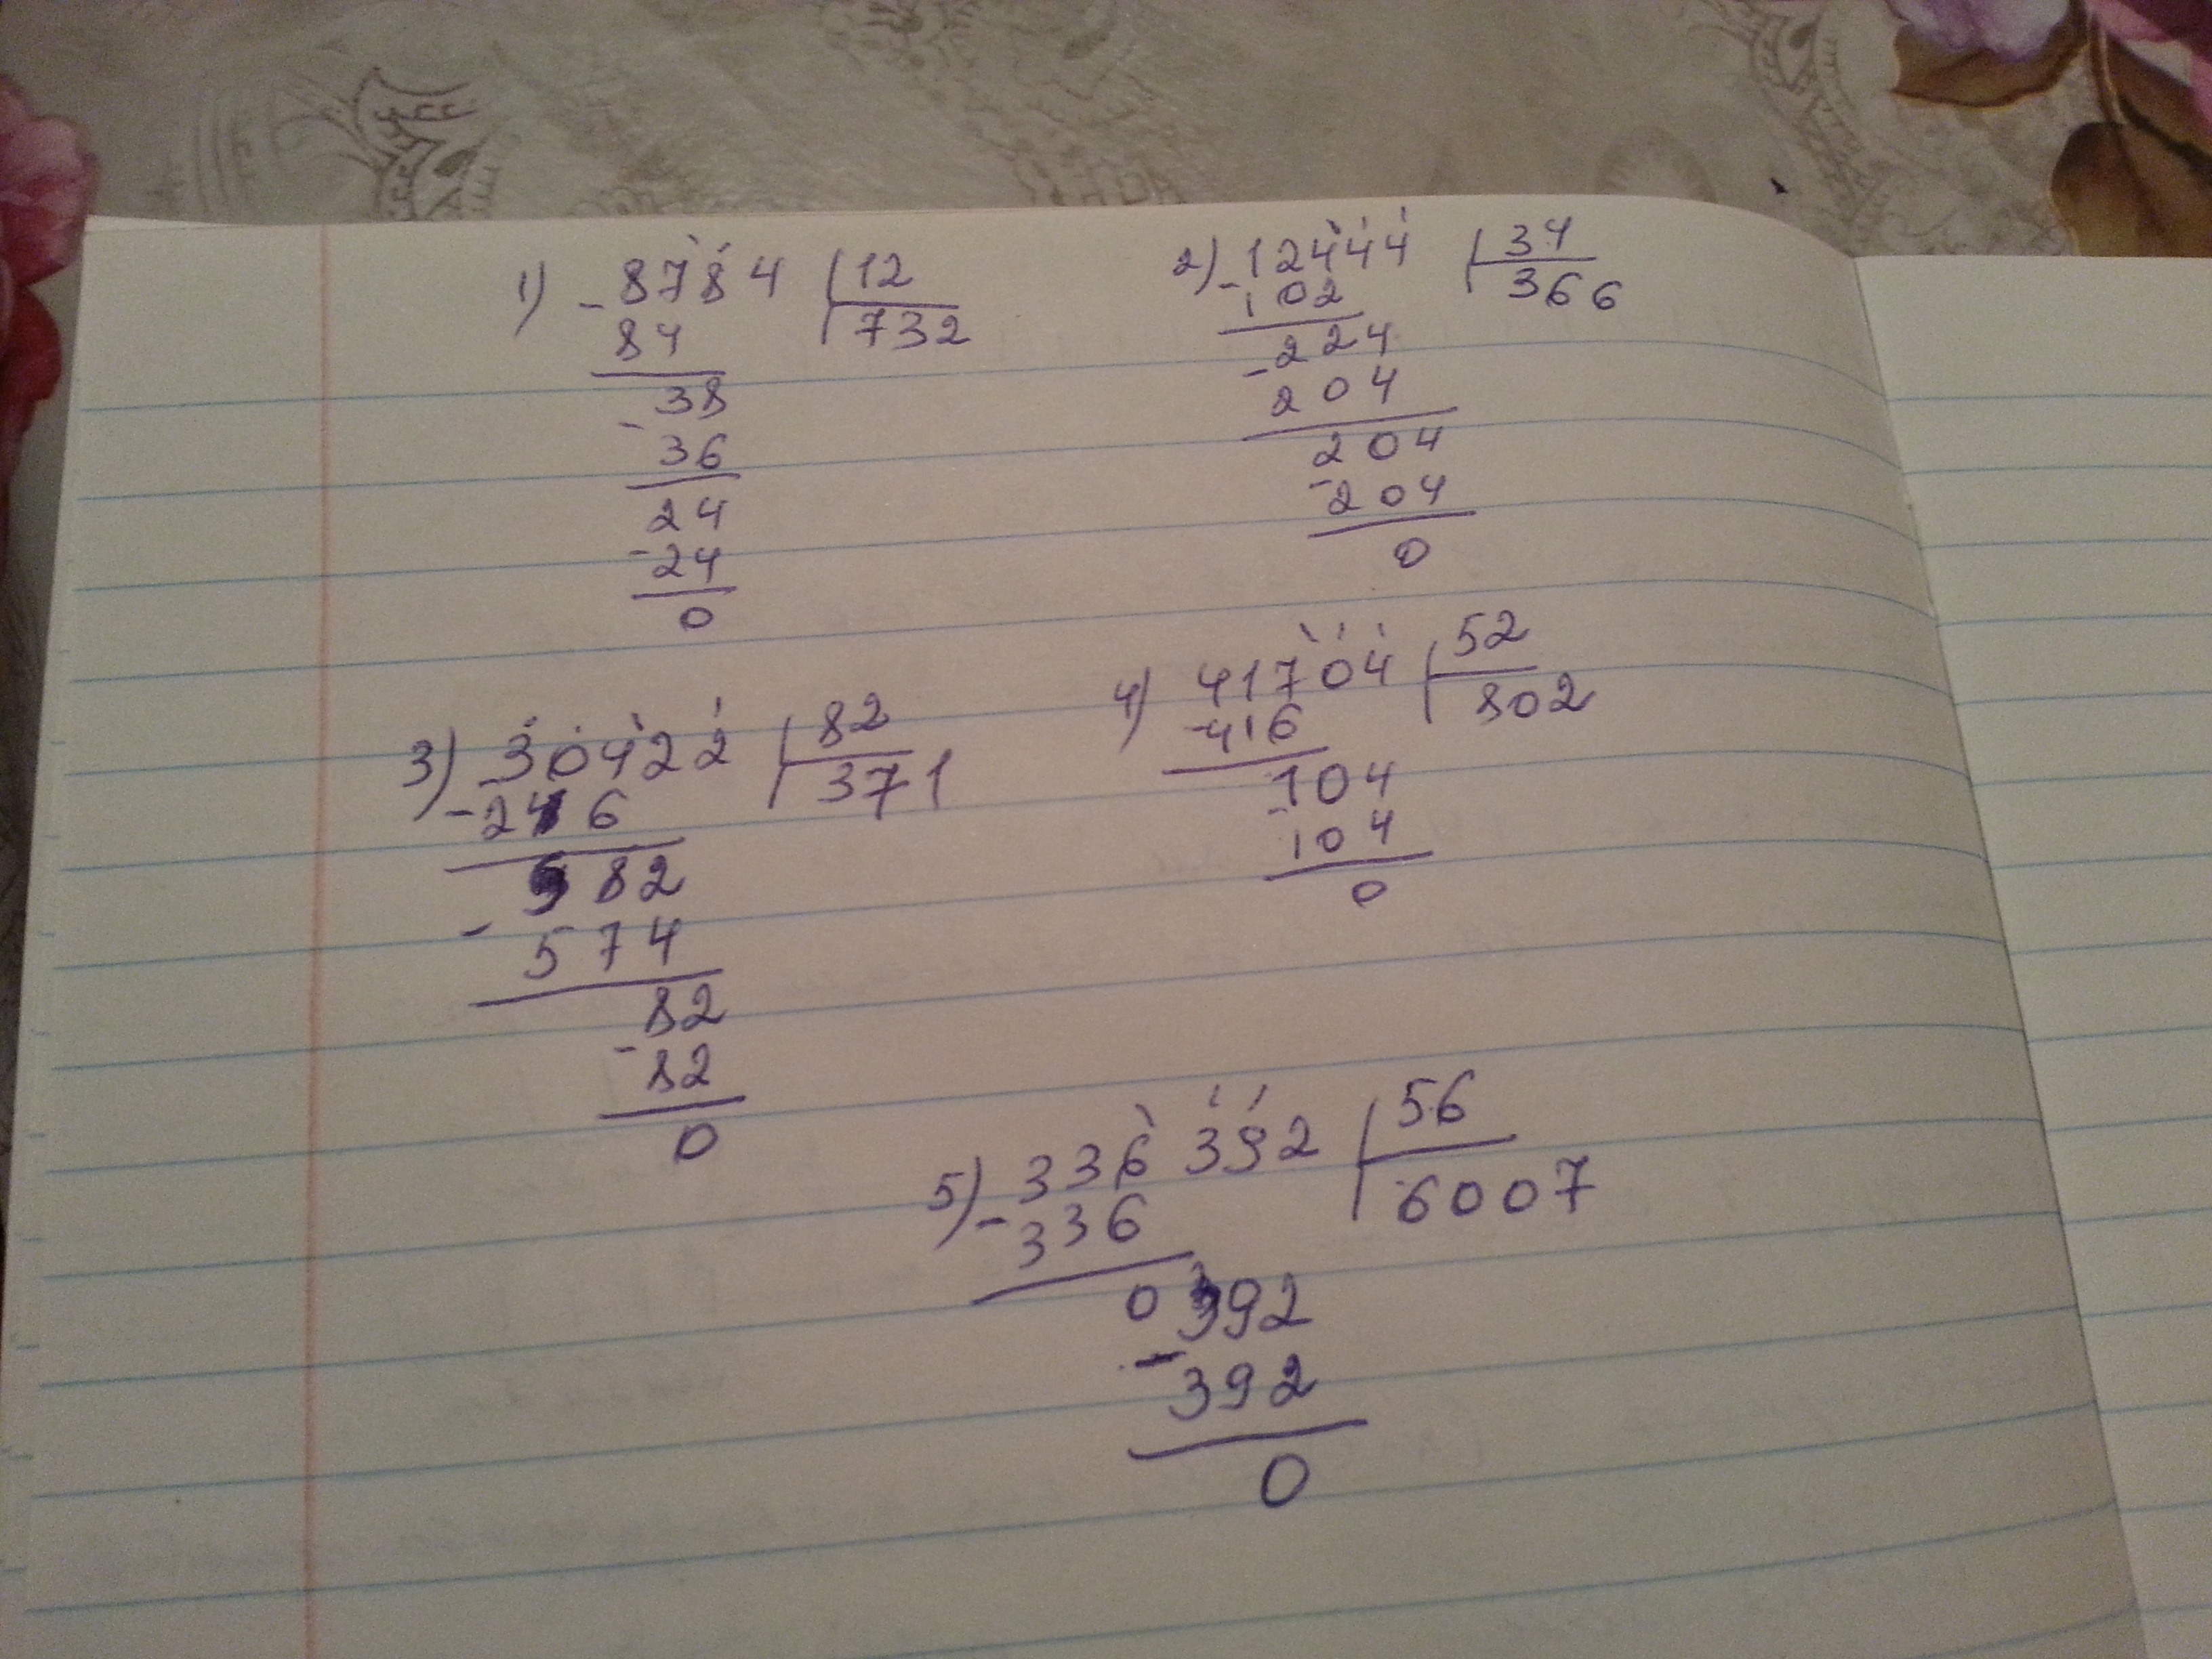 1) - 8784 | 12
84 | 732
38
- 36
24
- 24
0
2) - 12444 | 34
102 | 366
- 224
204
204
- 204
0
3) 30422 | 82
- 246 | 371
582
- 574
82
- 82
0
4) 41704 | 52
- 416 | 802
104
- 104
0
5) - 336 392 | 56
336 | 6007
0 392
- 392
0